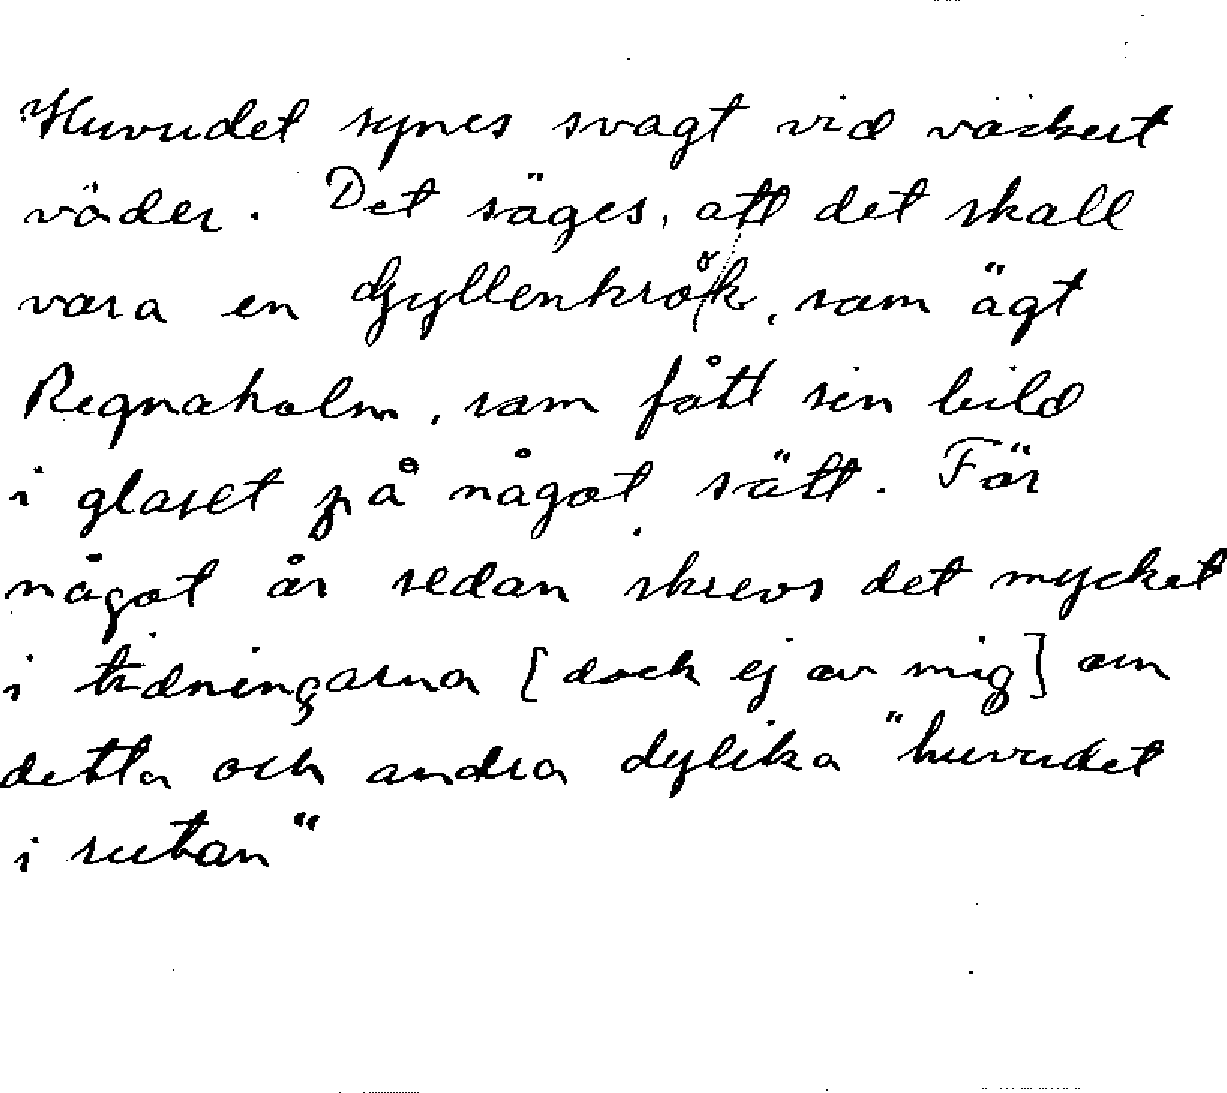 Huvudet synes svagt vid vackert
väder. Det säges, att det skall
vara en Gyllenkrök, som ägt
Regnaholm, som fått sin bild
i glaset på något sätt. För
något år sedan skrevs det mycket
i tidningarna [dock ej av mig] om
detta och andra dylika "huvudet
i rutan"